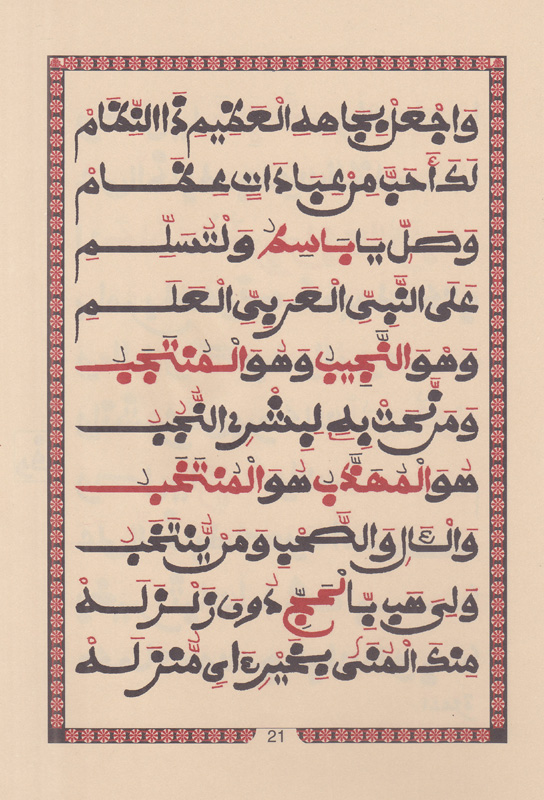 وَاجْعَلْ بِجَاهِهِ الْعَظِيمِ ذَا النِّظَامْ
لَكَ أَحَبَّ مِنْ عِبَادَاتٍ عِظَامْ
وَصَلِّ يَا بَاسِطُ وَلْتُسَلِّمِ
عَلَى النَّبِيِّ الْعَرَبِيِّ الْعَلَمِ
وَهْوَ النَّجِيبُ وَهُوَ الْمُنْتَجَبُ
وَمَنْ نَحَتْ بِهِ لِبِشْرٍ النُّجُبُ
هُوَ الْمُهَذَّبُ هُوَ الْمُنْتَخَبُ
وَالْآلِ وَالصَّحْبِ وَمَنْ يُنْتَخَبُ
وَلِيَ هَبْ بِالْحَجِّ دُونَ زَلْزَلَهْ
مِنْكَ الْمُنَى بِخَيْرِ أَيِ مَنْزِلَهْ
21